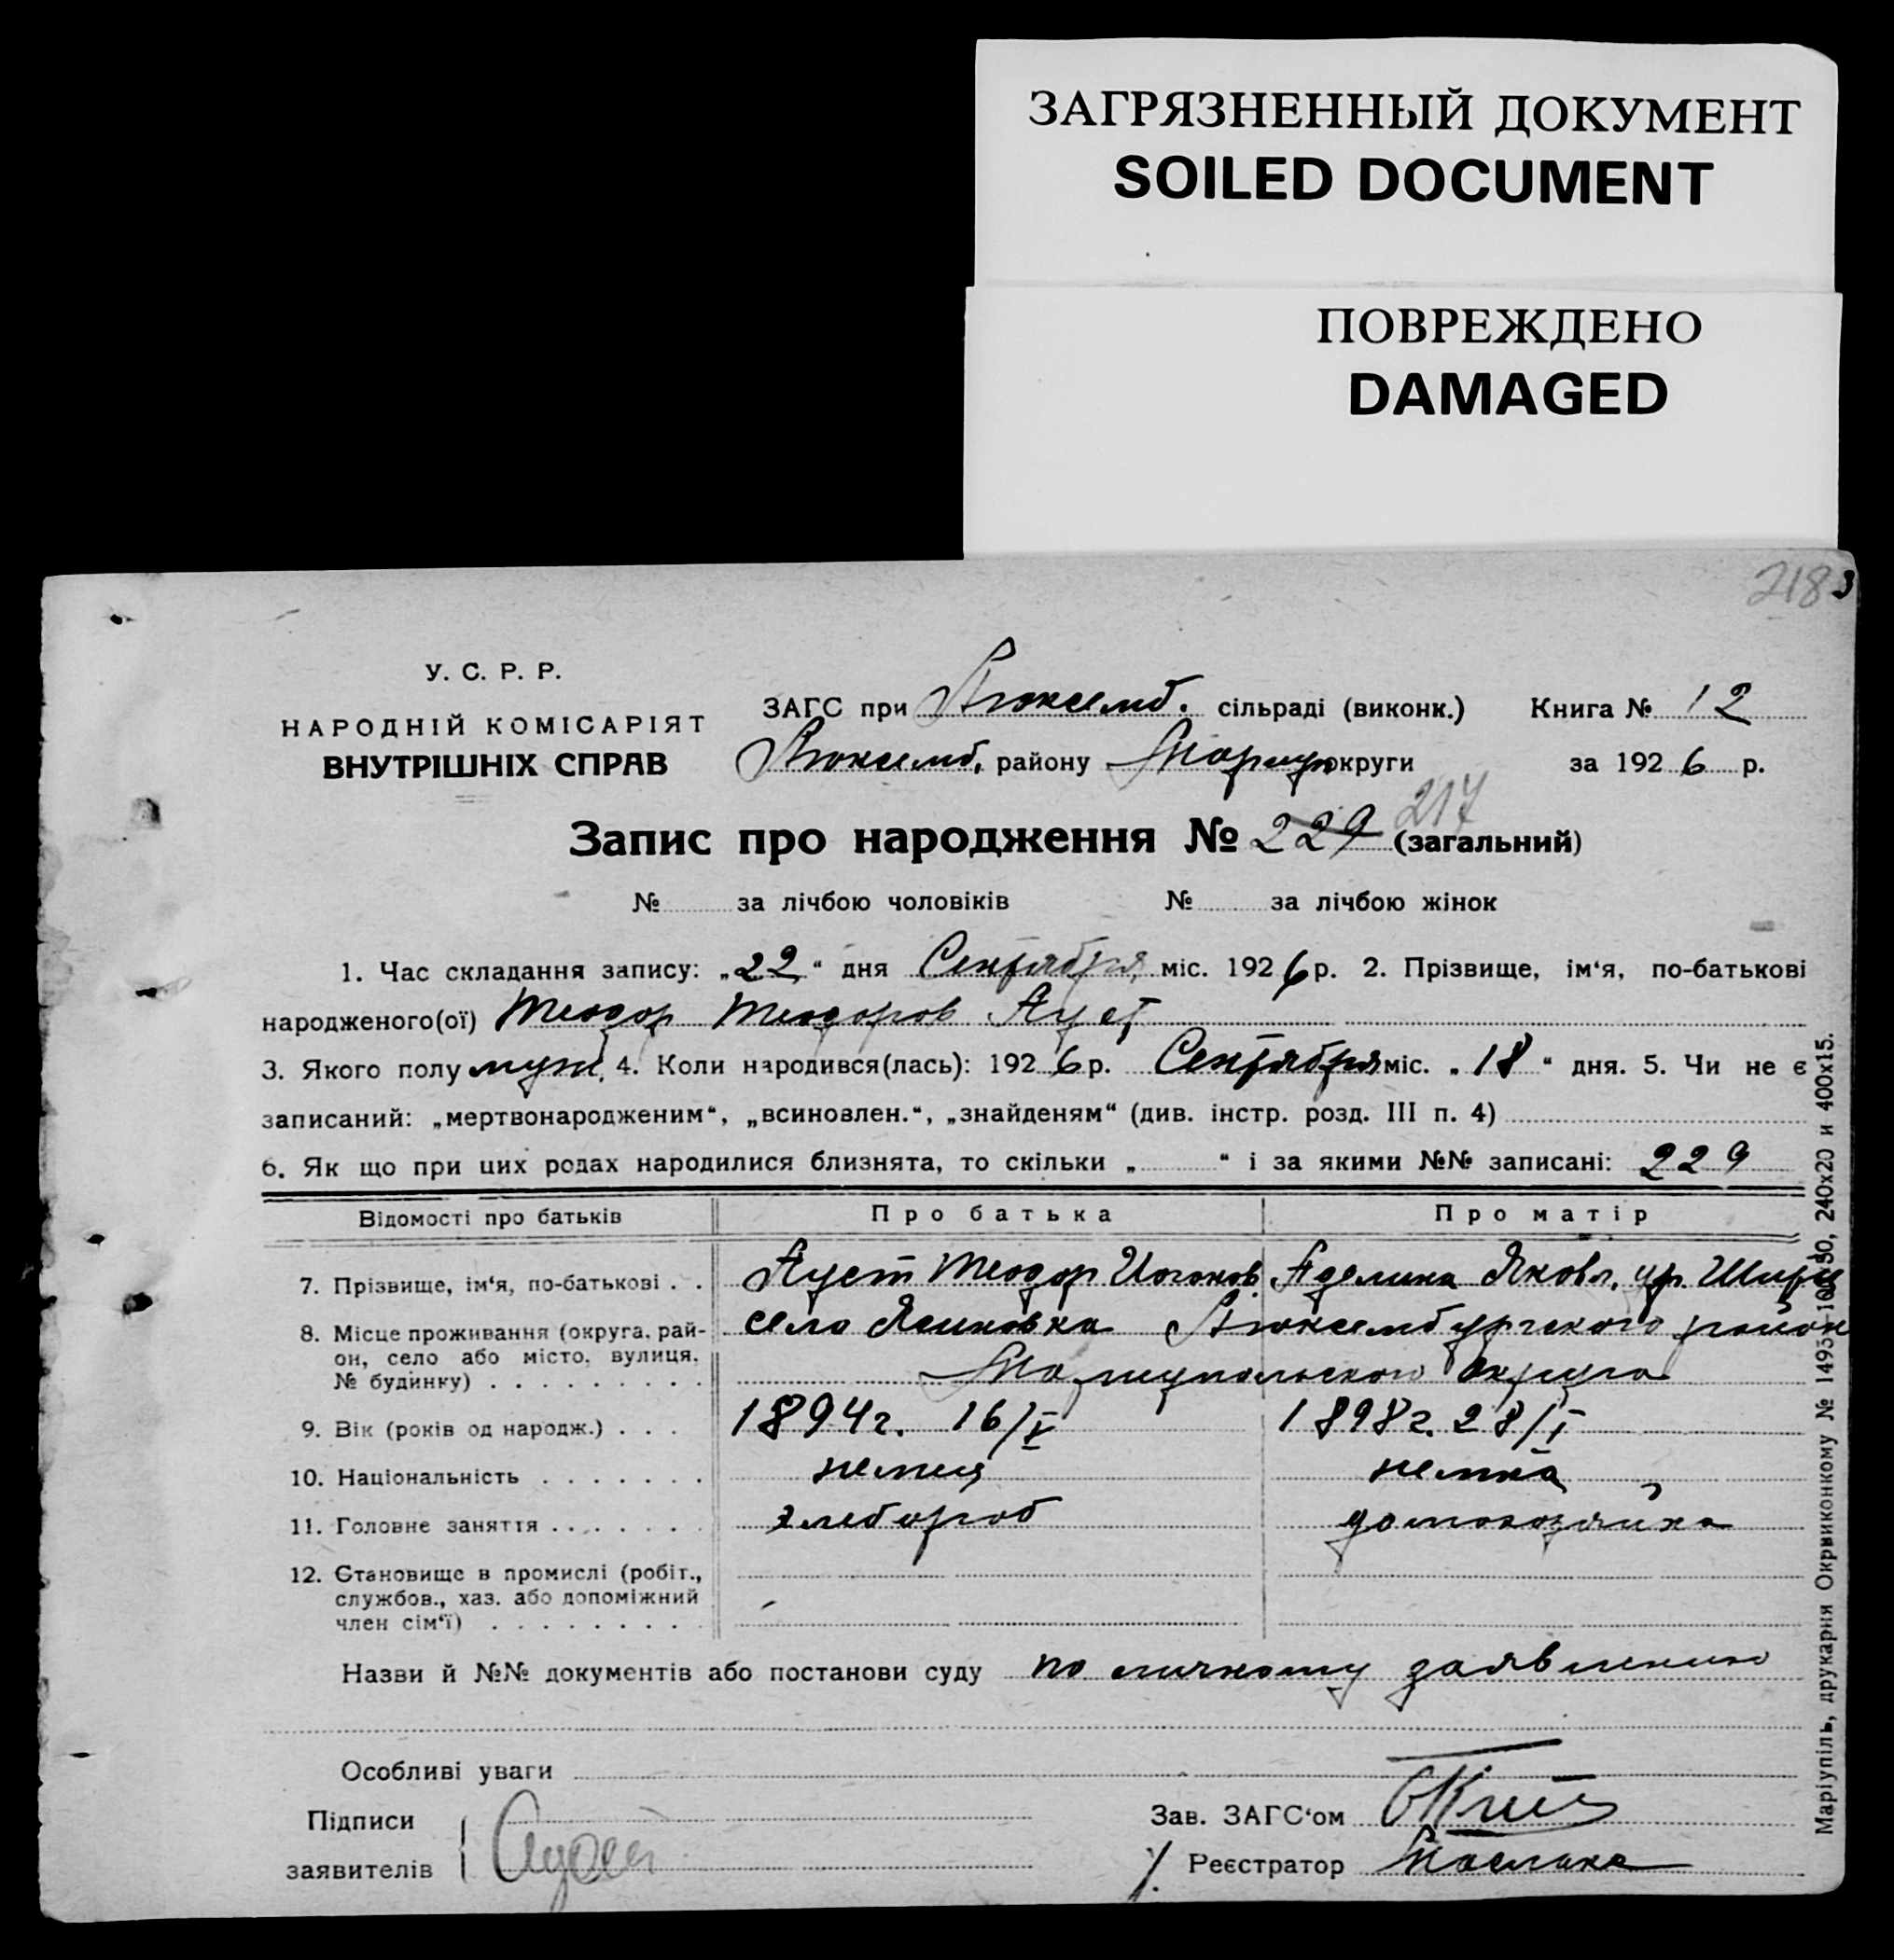 ЗАГРЯЗНЕННЫЙ ДОКУМЕНТ
SOILED DOCUMENT
ПОВРЕЖДЕНО
DAMAGED
218
У. С. Р. Р.
НАРОДНІЙ КОМІСАРІЯТ
ВНУТРІШНІХ СПРАВ
ЗАГС при Люксемб. сільраді (виконк.) Книга № 12
Люксемб. району Мариуп округи за 1926 р.
Запис про народження № 229 217 (загальний)
№ за лічбою чоловіків № за лічбою жінок
1. Час складання запису: „22“ дня Сентября міс. 1926 р. 2. Прізвище, ім‘я, по-батькові
народженого(ої) Теодор Теодоров Ауст
3. Якого полу муж. 4. Коли народився(лась): 1926 р. Сентября міс. „18“ дня. 5. Чи не є
записаний: „мертвонародженим“, „всиновлен.“, „знайденям“ (див. інстр. розд. III п. 4)
6. Як що при цих родах народилися близнята, то скільки „ “ і за якими №№ записані: 229
Відомості про батьків Про батька Про матір
7. Прізвище, ім‘я, по-батькові . . Ауст Теодор Иоганов. Аделина Яковл. ур.
8. Місце проживання (округа, рай-
он, село або місто, вулиця,
№ будинку) . . . . . . . . .
село Ясиновка Люксембургского район
Мариупольского Округа
9. Вік (років од народж.) . . . 1894г. 16/V 1898г. 28/I
10. Національність . . . . . . . немец немка
11. Головне заняття . . . . . . . хлебороб домохозяйка
12. Становище в промислі (робіт.,
службов., хаз. або допоміжний
член сім‘ї) . . . . . . . . .
Назви й №№ документів або постанови суду по личному заявлению
Особливі уваги
Підписи
заявителів
Зав. ЗАГС‘ом
Реєстратор
Маріупіль, друкарня Окрвиконкому № 1495 240х20 и 400х15.